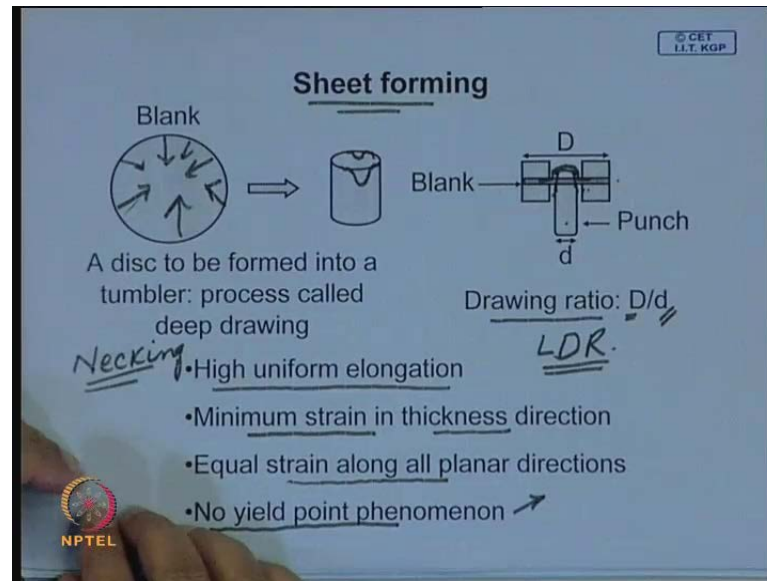 © CET
I.I.T. KGP
Sheet forming
Blank
D
Blank
Punch
d
A disc to be formed into a
tumbler: process called
deep drawing
Drawing ratio: D/d
LDR.
Necking
•High uniform elongation
•Minimum strain in thickness direction
•Equal strain along all planar directions
•No yield point phenomenon
NPTEL